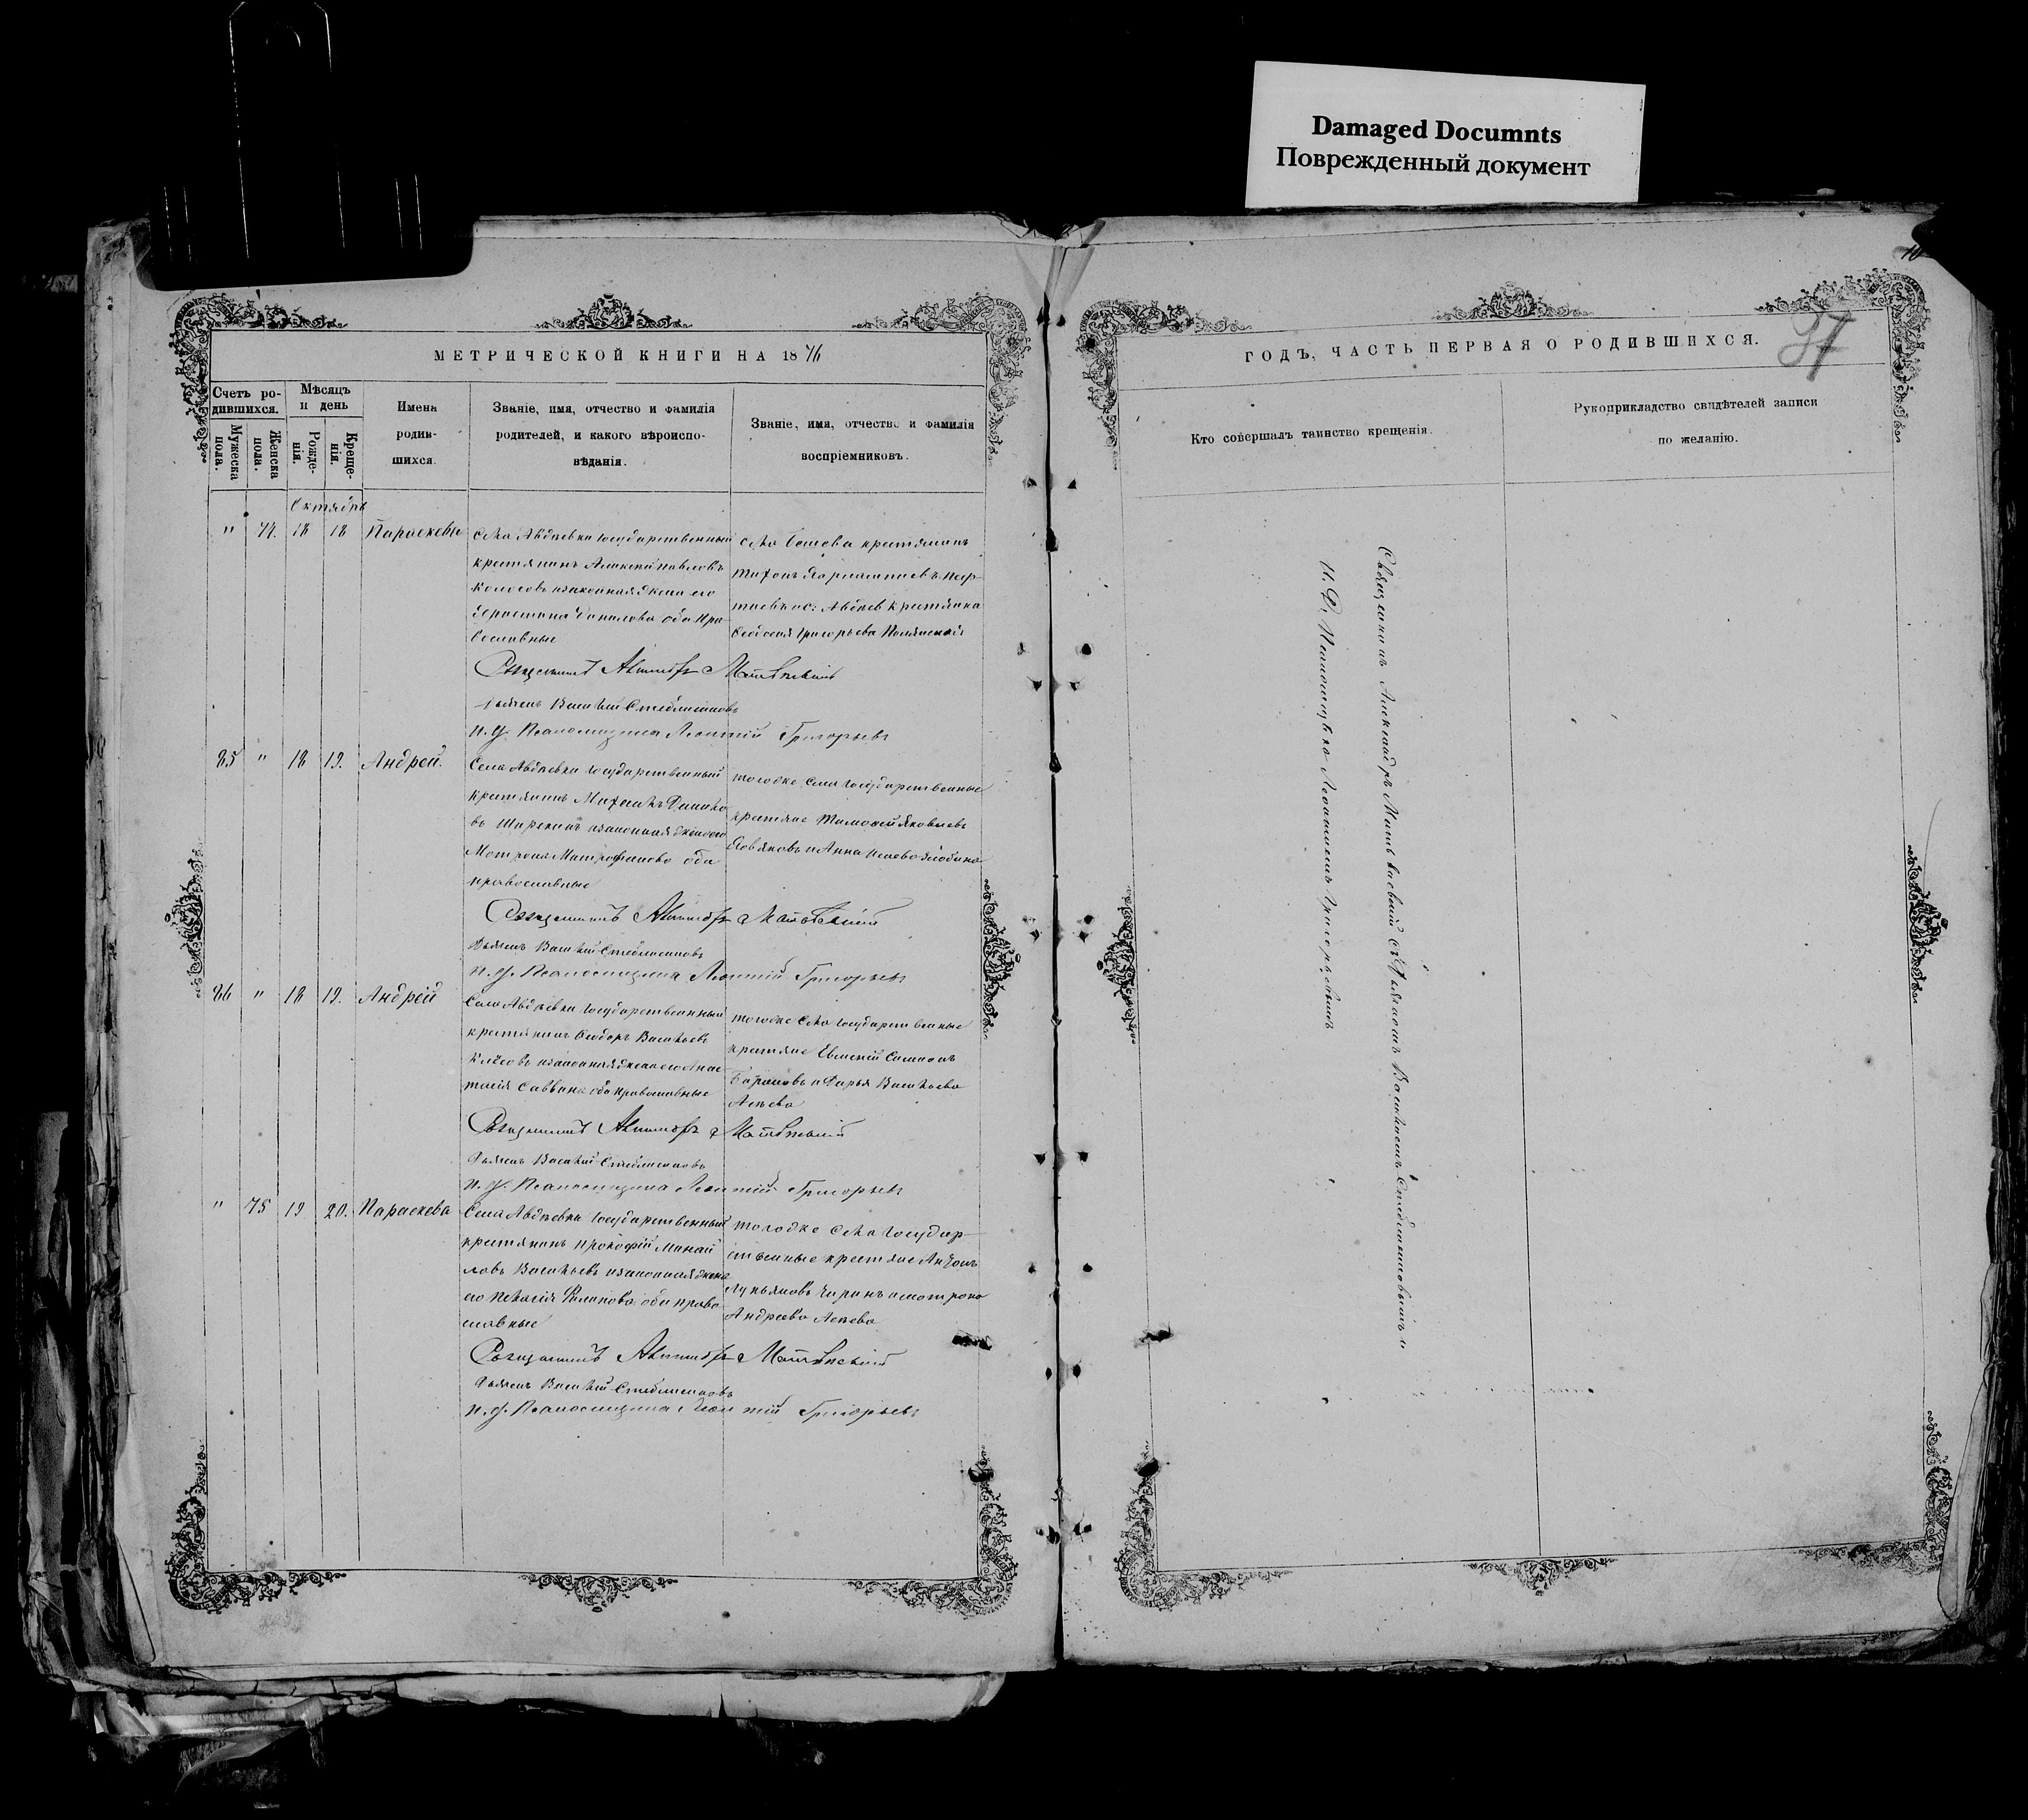 Damaged Documnts
Поврежденный документ
МЕТРИЧЕСКОЙ КНИГИ НА 1876
Счетъ ро-
дившихся.
Мужеска
пола.
Женска
пола.
Мѣсяцъ
и день
Рожде-
нія.
Креще-
нія.
Имена
родив-
шихся.
Званіе, имя, отчество и фамилія
родителей, и какого вѣроиспо-
вѣданія.
Званіе, имя, отчество и фамилія
воспріемниковъ.
Октябрь
" 74. 18 18 Параскева
села Авдѣевки государственный
крестьянинъ Алексѣй Павловъ
Колосовъ и законная жена его
Христина Данилова оба пра-
вославные
села Бешева крестьянинъ
крестьянка
Ѳеодосія Григорьева
Священникъ Александръ Матвѣевскій
Дьяконъ Василій Стеблянковъ
И. Д. Псаломщика Леонтій Григорьевъ
85 " 18 19. Андрей.
Села Авдѣевки государственный
крестьянинъ Михаилъ Данило-
въ и законная жена его
Матрона Митрофанова оба
православные
тогоже села государственные
крестьяне Тимофей Яковлевъ
и Анна
Священникъ Александръ Матвѣевскій
Дьяконъ Василій Стеблянковъ
И. Д. Псаломщика Леонтій Григорьевъ
86 " 18 19. Андрей
Села Авдѣевки государственный
крестьянинъ Ѳеодоръ Васильевъ
и законная жена его Анас-
тасія Саввина оба православные
тогоже села государственные
крестьяне Евменій
и Дарья Васильева
Священникъ Александръ Матвѣевскій
Дьяконъ Василій Стеблянковъ
И. Д. Псаломщика Леонтій Григорьевъ
" 75 19 20. Параскева
Села Авдѣевки государственный
крестьянинъ Прокофій Манай
ловъ Васильевъ и законная жена
его Пелагія Филипова оба право
славные
тогоже села государ-
ственные крестьяне Антонъ
Лукьяновъ и Матрона
Андреева
Священникъ Александръ Матвѣевскій
Дьяконъ Василій Стеблянковъ
И. Д. Псаломщика Леонтій Григорьевъ
ГОДЪ, ЧАСТЬ ПЕРВАЯ О РОДИВШИХСЯ.
37
Кто совершалъ таинство крещенія.
Рукоприкладство свидѣтелей записи
по желанію.
Священникъ Александръ Матвѣевскій съ Дьякономъ Василіемъ Стеблянковымъ и
И. Д. Псаломщика Леонтіемъ Григорьевымъ